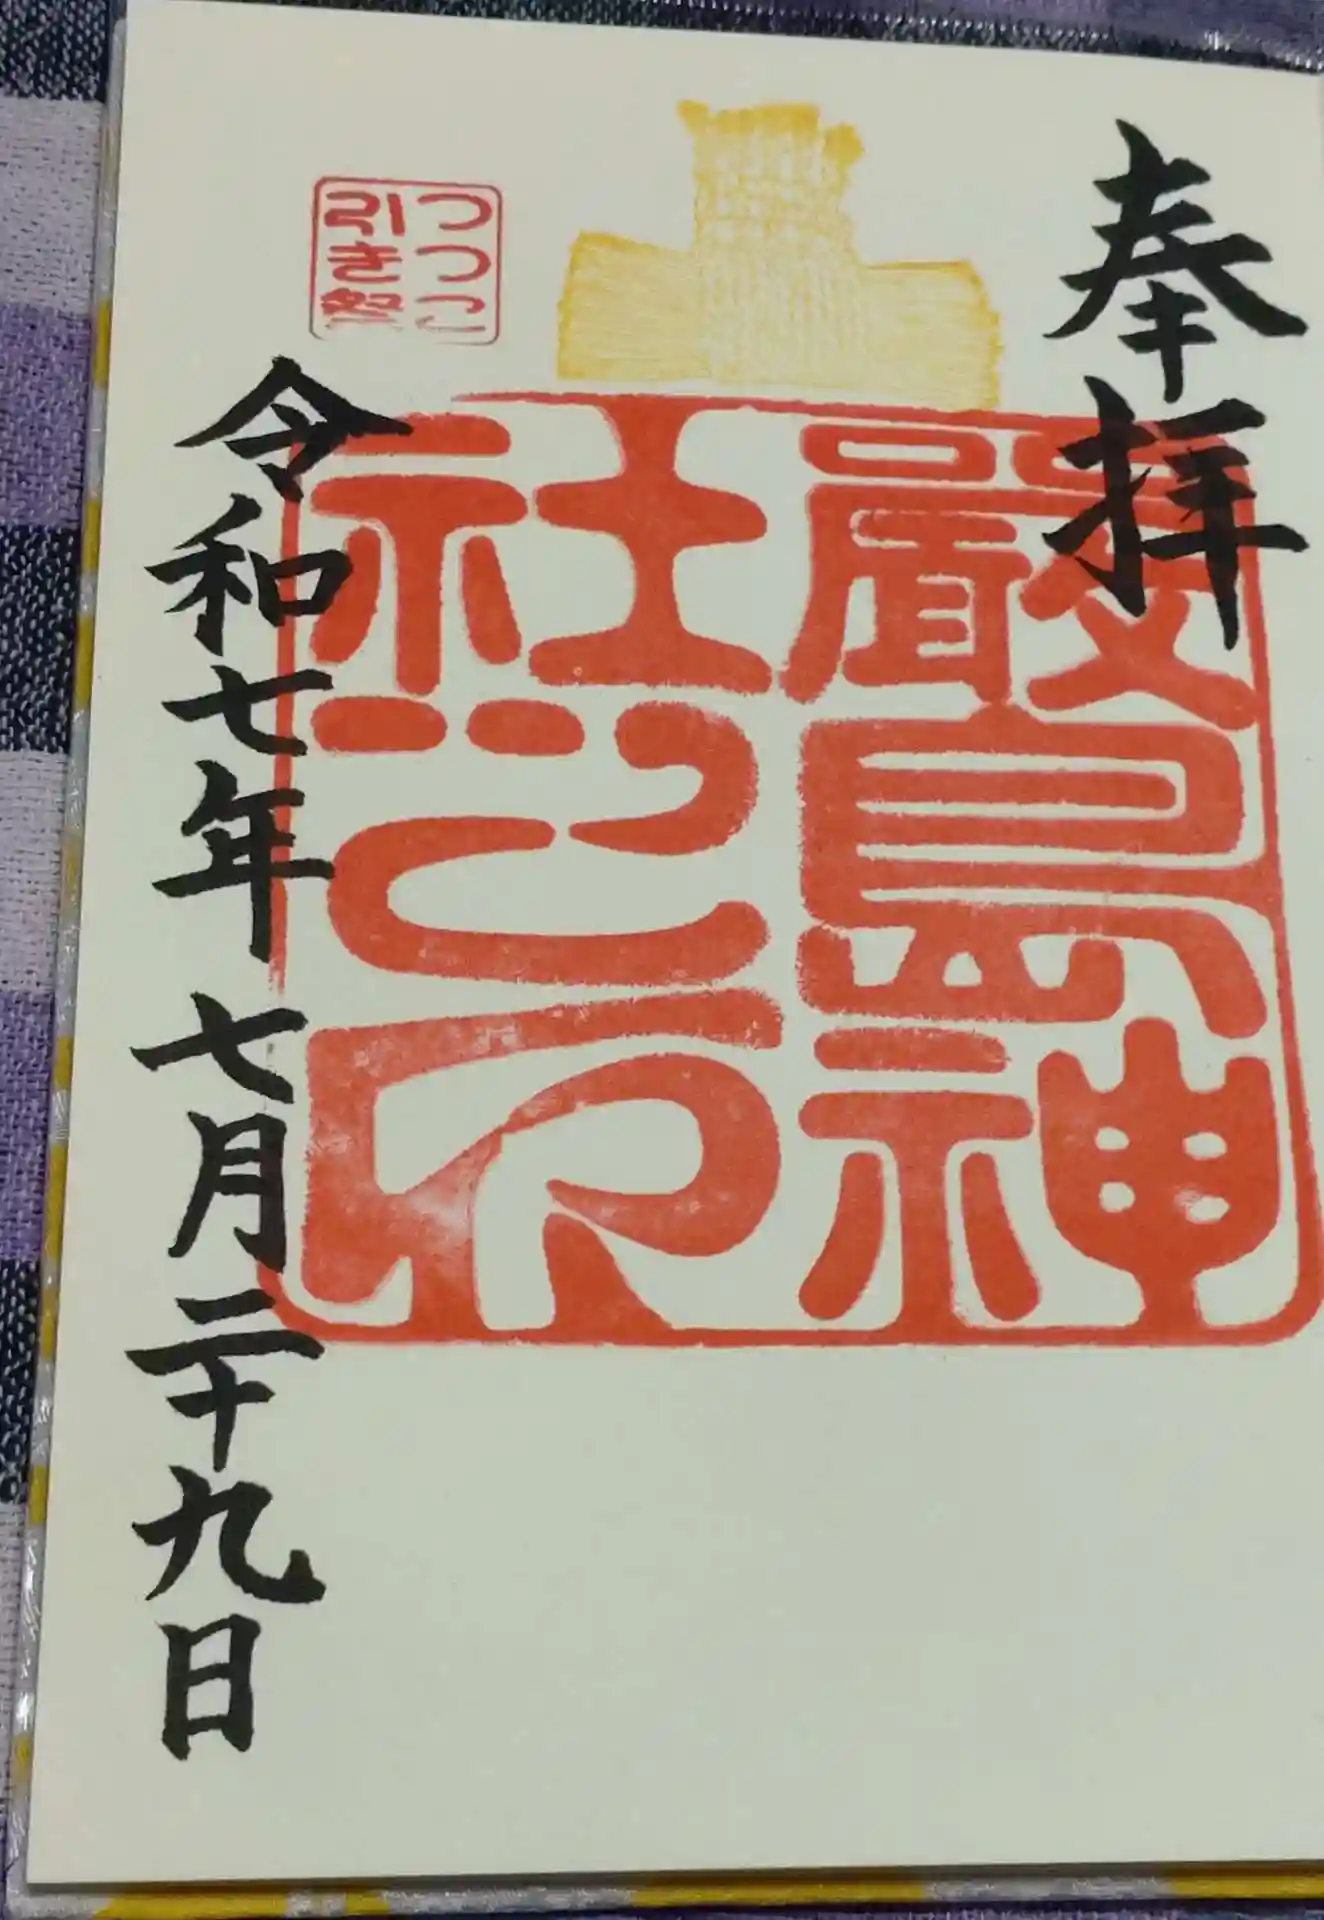 奉拝
嚴島神
社之印
つつこ
引き祭
令和七年 七月二十九日